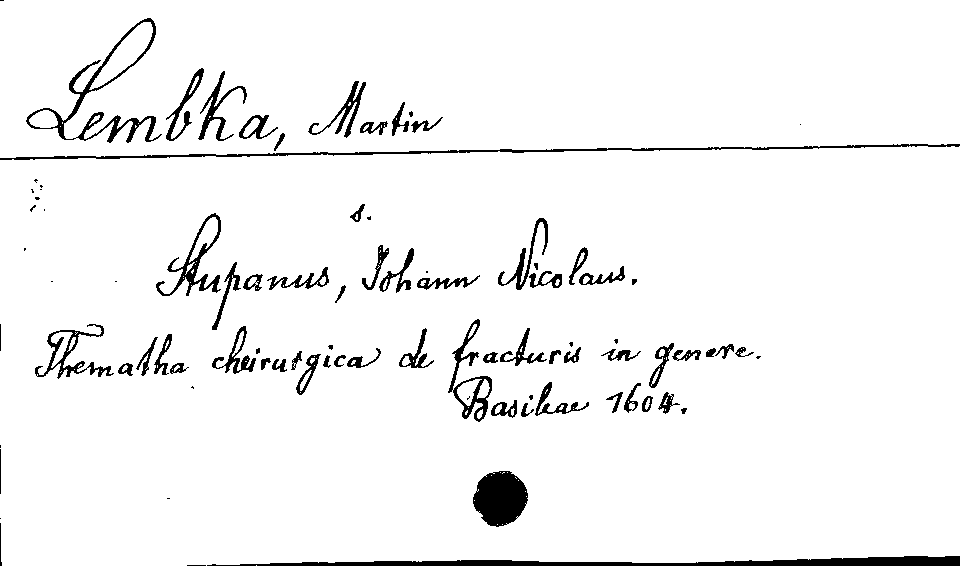 Lembka, Martin
s.
Stupanus, Johann Nicolaus.
Thematha cheirurgica de fracturis in genere.
Basileae 1604.